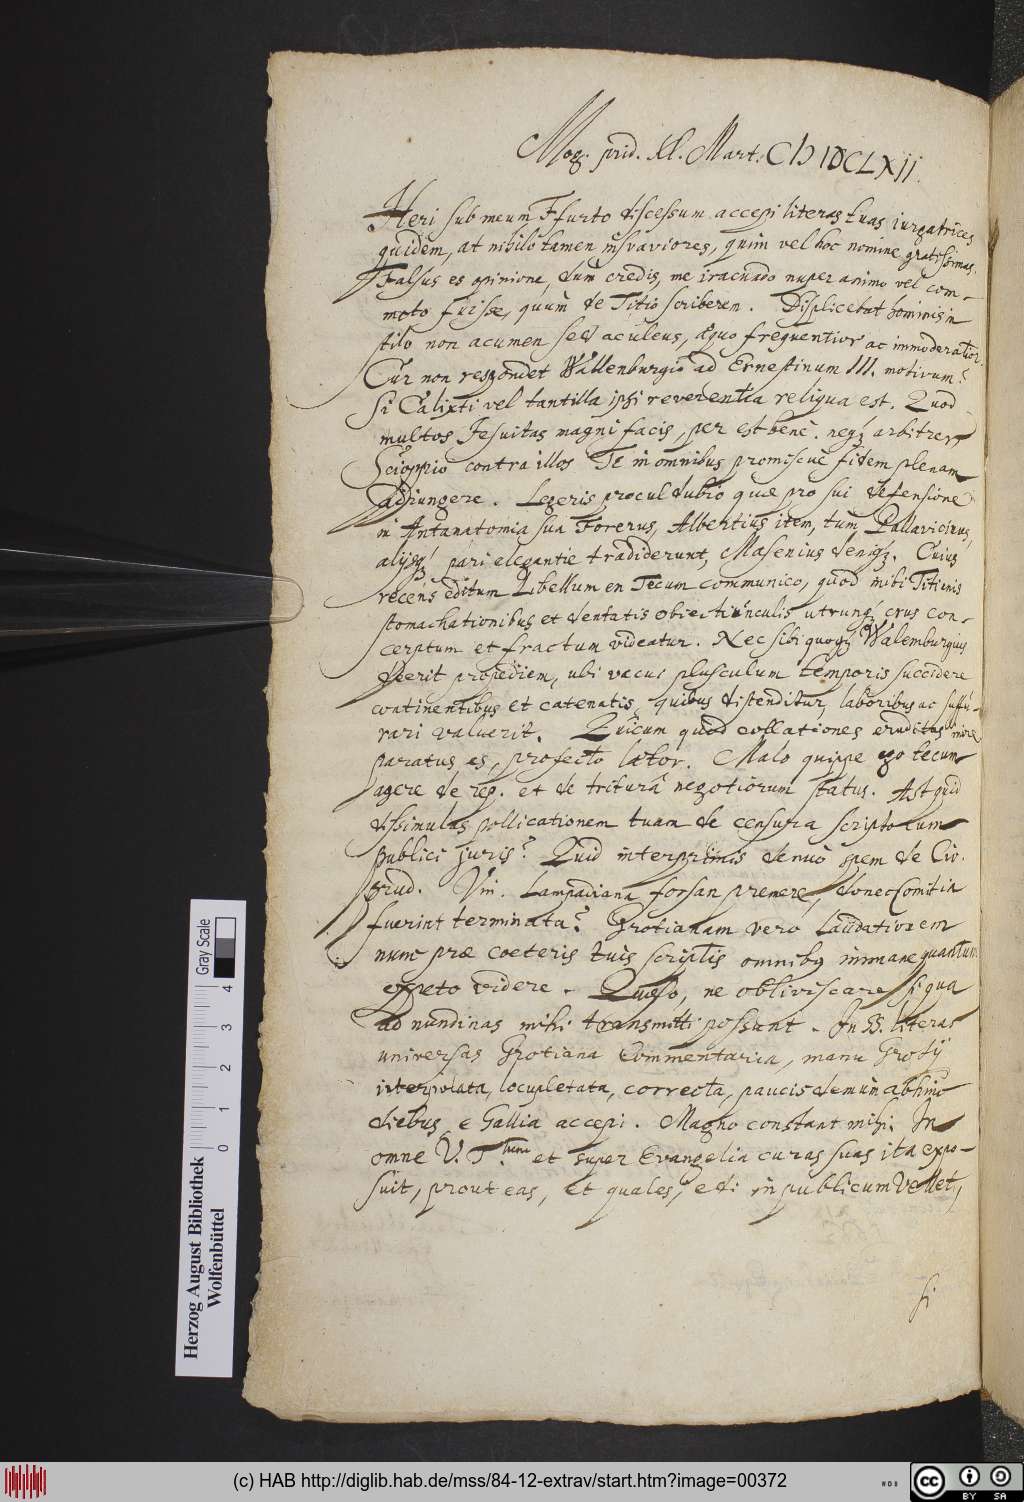 Mog. prid. Kl. Mart. CIƆ IƆCLXII.
Heri sub meum Ffurto discessum accepi literas tuas iurgatrices
quidem, at nihilo tamen insvaviores, quin vel hoc nomine gratissimas.
Falsus es opinione, dum credis, me iracundo nuper animo vel com-
moto fuisse, quum de Titio scriberem. Displicebat hominis in
stilo non acumen sed aculeus, æquo frequentior ac immoderatior.
Cur non respondet Wallenburgio ad Ernestinum III. motivum?
Si Calixti vel tantilla ipsi reverentia reliqua est. Quod
multos Jesuitas magni facis, per est bene. neqz arbitrer
Scioppio contra illos Te in omnibus promiscue fidem plenam
adjungere. Legeris procul dubio quæ pro sui defensione
in Antanatomia sua Forerus, Albertius item, tum Pallavicinus,
alijsqz pari elegantie tradiderunt, Masenius deniqz. Cuius
recens editum Libellum en Tecum communico, quod mihi Titianis
stomachationibus et dentatis obiectiunculis utrunqz crus con-
cerptum et fractum videatur. Nec sibi quoqz Walemburgius
deerit propediem, ubi vacui plusculum temporis succidere
continentibus et catenatis, quibus distenditur, laboribus ac suffu-
rari valuerit. Quicum quod collationes eruditas inire
paratus es, profecto lætor. Malo quippe ego tecum
agere de rep. et de triturâ negotiorum status. Ast quid
dissimulas pollicationem tuam de censura scriptorum
publici juris? Quid interprimis denuò spem de Civ.
prud. Vin. Lampadiana forsan premere, donec Comitia
fuerint terminata? Grotianam vero Laudationem
num præ cœteris tuis scriptis omnibus inmane quantum
expeto videre. Quæso, ne obliviscare si qua
ad nundinas mihi transmitti possunt. In SS. literas
universas Grotiana Commentaria, manu Grotij
interpolata, locupletata, correcta, paucis demum abhinc
diebus e Gallia accepi. Magno constant mihi. In
omne V. T.tum et super Evangelia curas suas ita expo-
suit, prout eas, et quales, edi in publicum vellet,
si
Herzog August Bibliothek
Wolfenbüttel
0 1 2 3 4 Gray Scale
(c) HAB http://diglib.hab.de/mss/84-12-extrav/start.htm?image=00372
cc BY SA